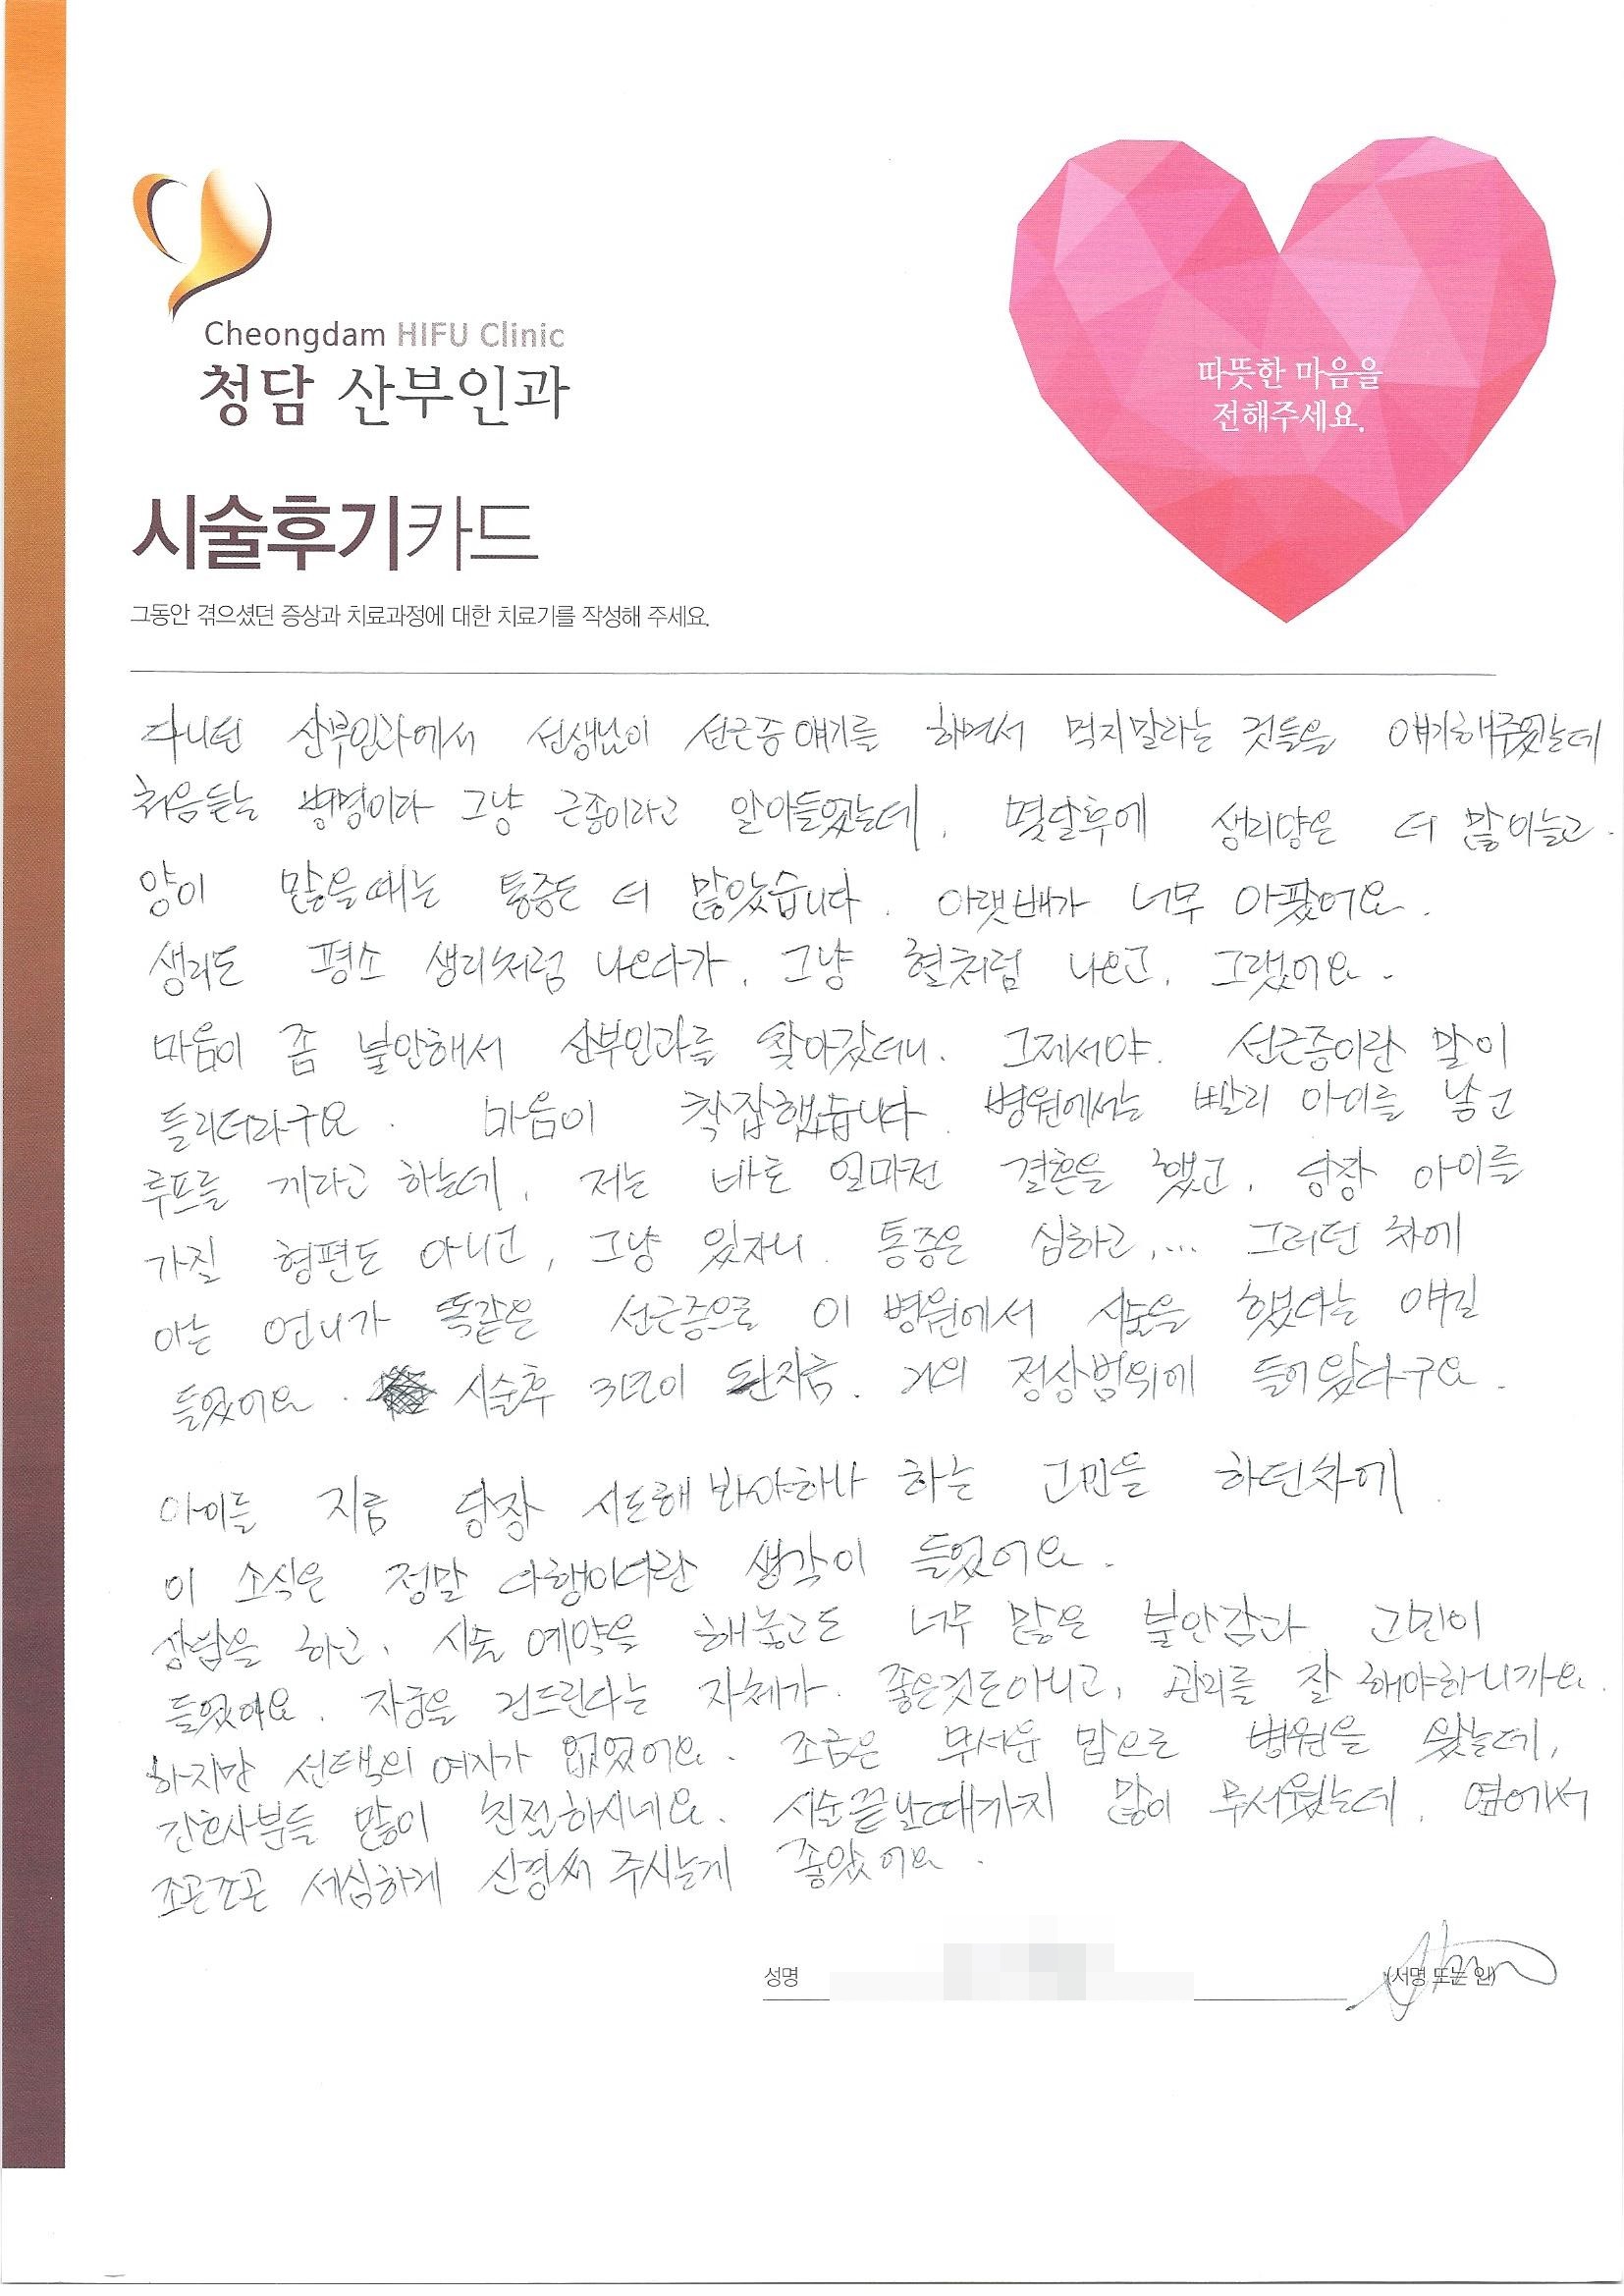 Cheongdam HIFU Clinic
청담 산부인과
따뜻한 마음을
전해주세요.
시술후기카드
그동안 겪으셨던 증상과 치료과정에 대한 치료기를 작성해 주세요.
다니던 산부인과에서 선생님이 선근증 얘기를 하면서 먹지말라는 것들을 얘기해주었는데
처음듣는 병명이라 그냥 근종이라고 알아들었는데. 몇달후에 생리양은 더 많아늘고.
양이 많을때는 통증도 더 많았습니다. 아랫배가 너무 아팠어요.
생리도 평소 생리처럼 나오다가. 그냥 혈처럼 나오고. 그랬어요.
마음이 좀 불안해서 산부인과를 찾아갔더니. 그제서야. 선근증이란 말이
들리더라구요. 마음이 착잡했습니다. 병원에서는 빨리 아이를 낳고
루프를 끼라고 하는데, 저는 바로 얼마전 결혼을 했고, 당장 아이를
가질 형편도 아니고, 그냥 있자니. 통증은 심하고,... 그러던 차에
아는 언니가 똑같은 선근증으로 이 병원에서 시술을 했다는 얘길
들었어요. 시술후 3년이 된지금. 거의 정상범위에 들어왔다구요.
아이를 지금 당장 시도해 봐야하나 하는 고민을 하던차에
이 소식은 정말 다행이더란 생각이 들었어요.
상담을 하고, 시술 예약을 해놓고도 너무 많은 불안감과 고민이
들었어요. 자궁을 건드린다는 자체가. 좋은것도아니고, 관리를 잘 해야하니까요.
하지만 선택의 여지가 없었어요. 조금은 무서운 맘으로 병원을 왔는데,
간호사분들 많이 친절하시네요. 시술끝날때까지 많이 무서웠는데. 옆에서
조곤조곤 세심하게 신경써 주시는게 좋았어요.
성명
(서명 또는 인)